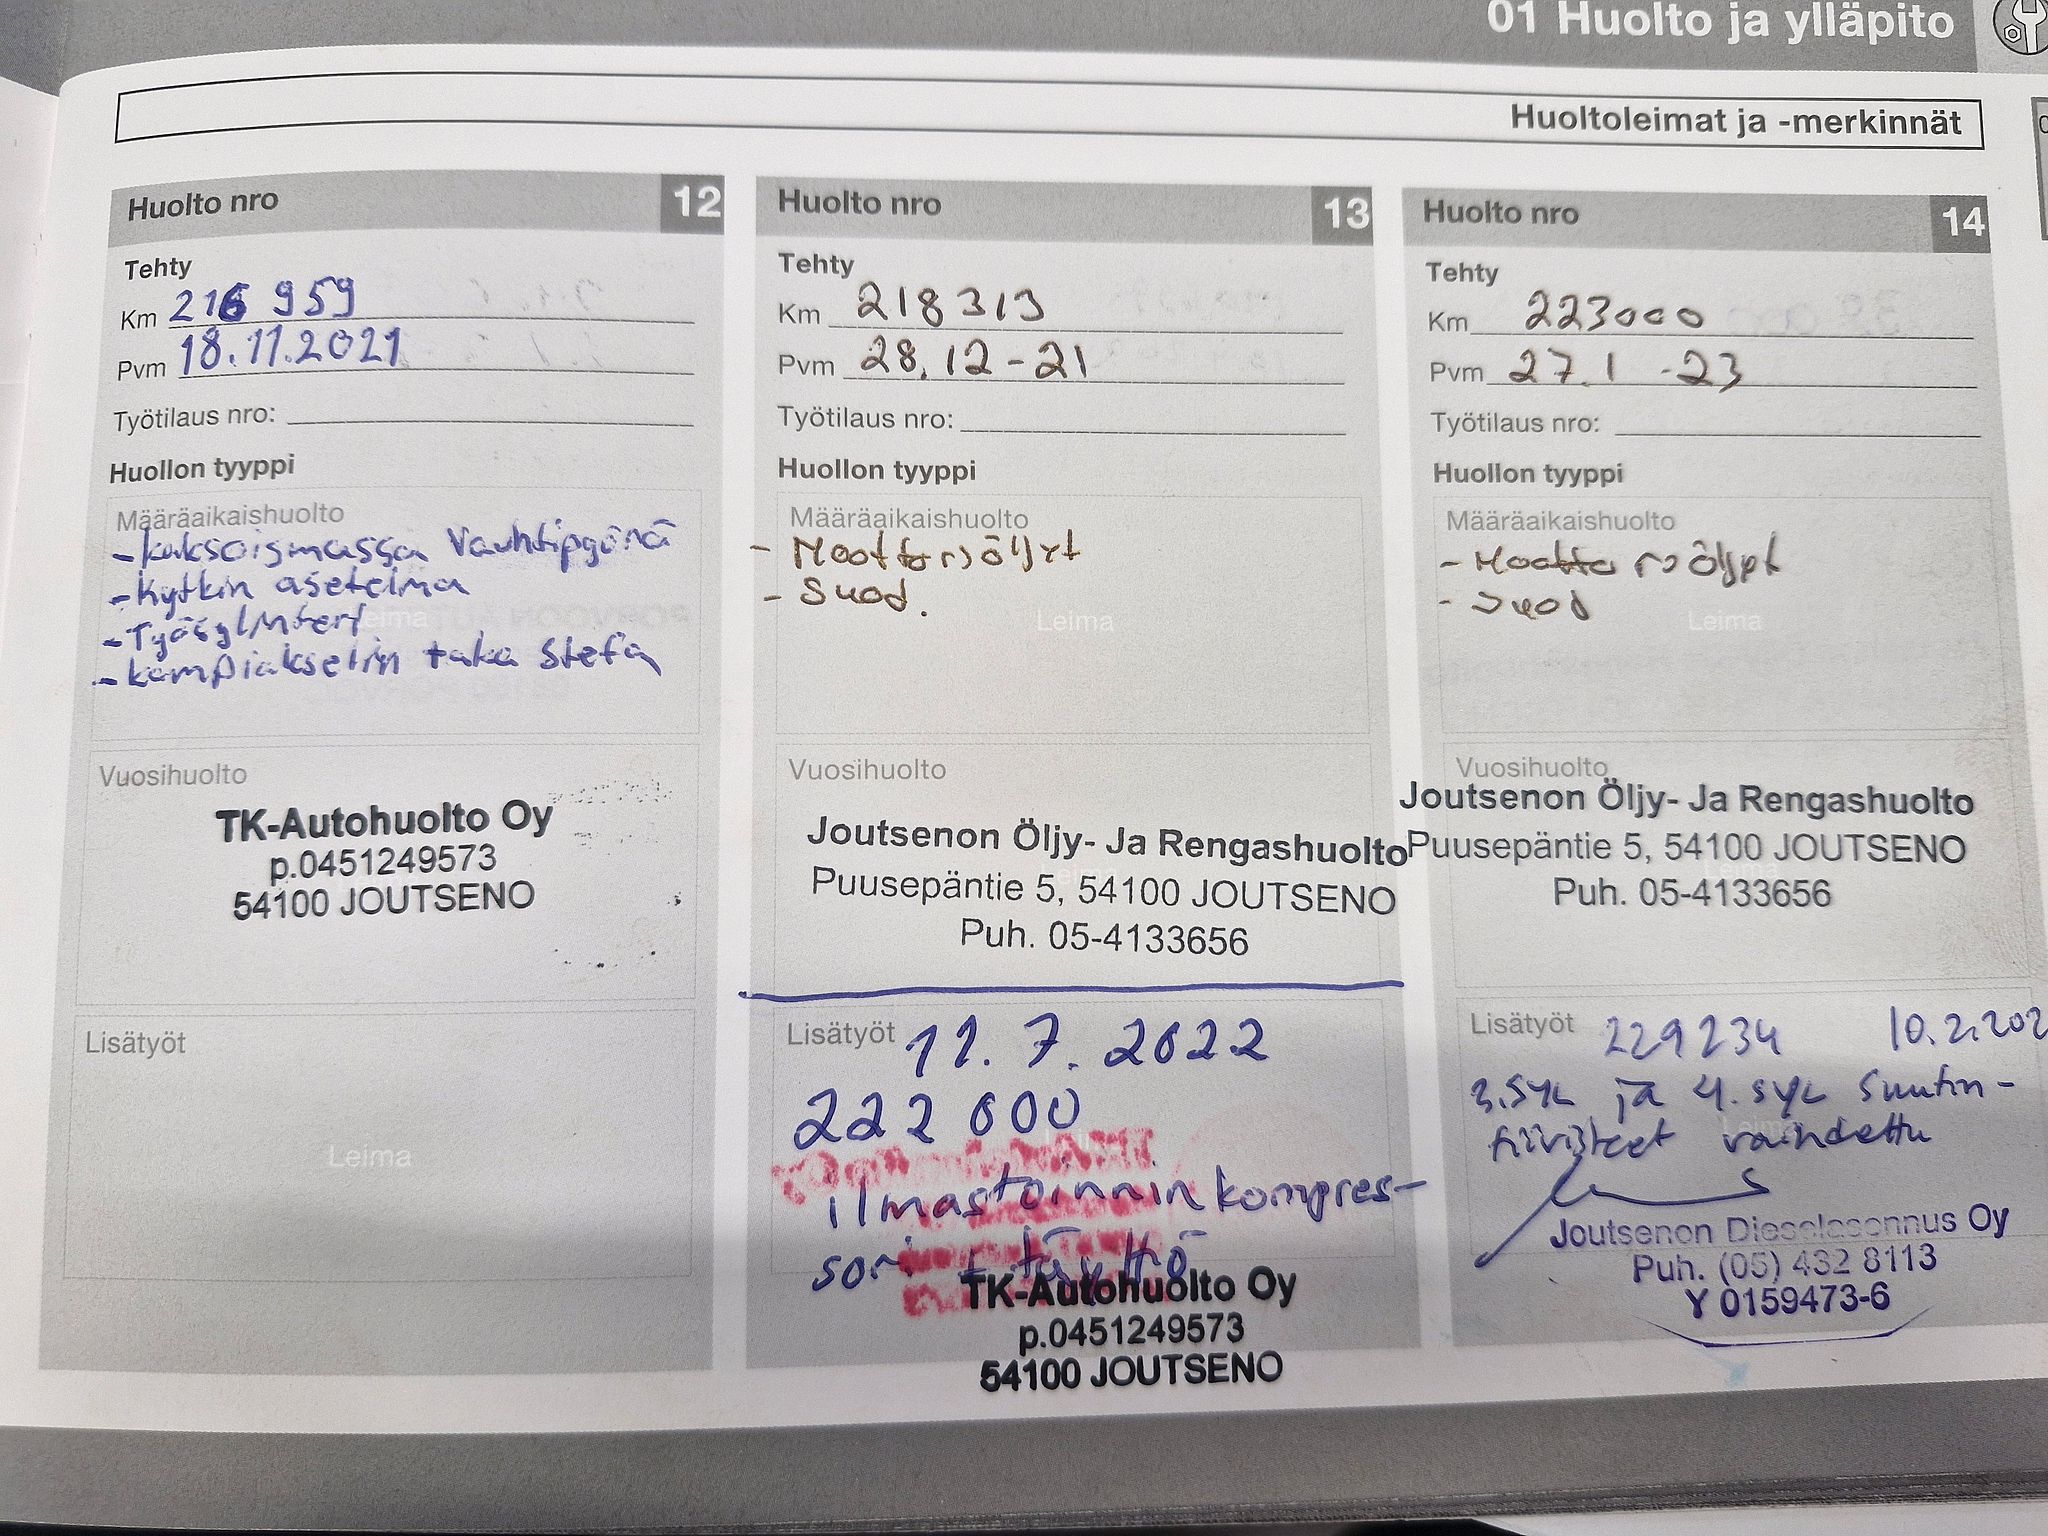 01 Huolto ja ylläpito
Huoltoleimat ja -merkinnät
Huolto nro 12
Tehty
Km 216 959
Pvm 18.11.2021
Työtilaus nro:
Huollon tyyppi
Määräaikaishuolto
- kaksoismassa vauhtipyörä
- Kytkin asetelma
- Työsylinteri
- kampiakselin taka stefa
Leima
Vuosihuolto
TK-Autohuolto Oy
p.0451249573
54100 JOUTSENO
Lisätyöt
Leima
Huolto nro 13
Tehty
Km 218313
Pvm 28.12-21
Työtilaus nro:
Huollon tyyppi
Määräaikaishuolto
- Moottoriöljyt
- Suod.
Leima
Vuosihuolto
Joutsenon Öljy- Ja Rengashuolto
Puusepäntie 5, 54100 JOUTSENO
Puh. 05-4133656
Lisätyöt 11.7.2022
222 000
ilmastoinnin kompres-
sori + täyttö
TK-Autohuolto Oy
p.0451249573
54100 JOUTSENO
Huolto nro 14
Tehty
Km 223000
Pvm 27.1 -23
Työtilaus nro:
Huollon tyyppi
Määräaikaishuolto
- Moottoriöljyt
- Suod
Leima
Vuosihuolto
Joutsenon Öljy- Ja Rengashuolto
Puusepäntie 5, 54100 JOUTSENO
Puh. 05-4133656
Lisätyöt 229234 10.2.202
3.syl ja 4.syl suutin-
tiivisteet vaihdettu
Joutsenon Dieselasennus Oy
Puh. (05) 432 8113
Y 0159473-6